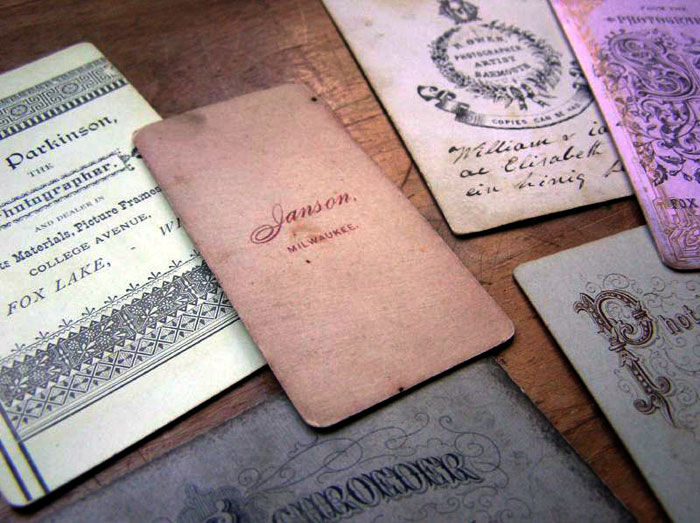 Parkinson,
THE
Photographer.
AND DEALER IN
Materials, Picture Frames
COLLEGE AVENUE,
FOX LAKE, - WI
Janson,
MILWAUKEE.
R. OWEN,
PHOTOGRAPHER
ARTIST
BARMOUTH
COPIES CAN BE HAD
William
Elisabeth
FROM THE
PHOTOGRAPH
FOX
Phot
SCHROEDER